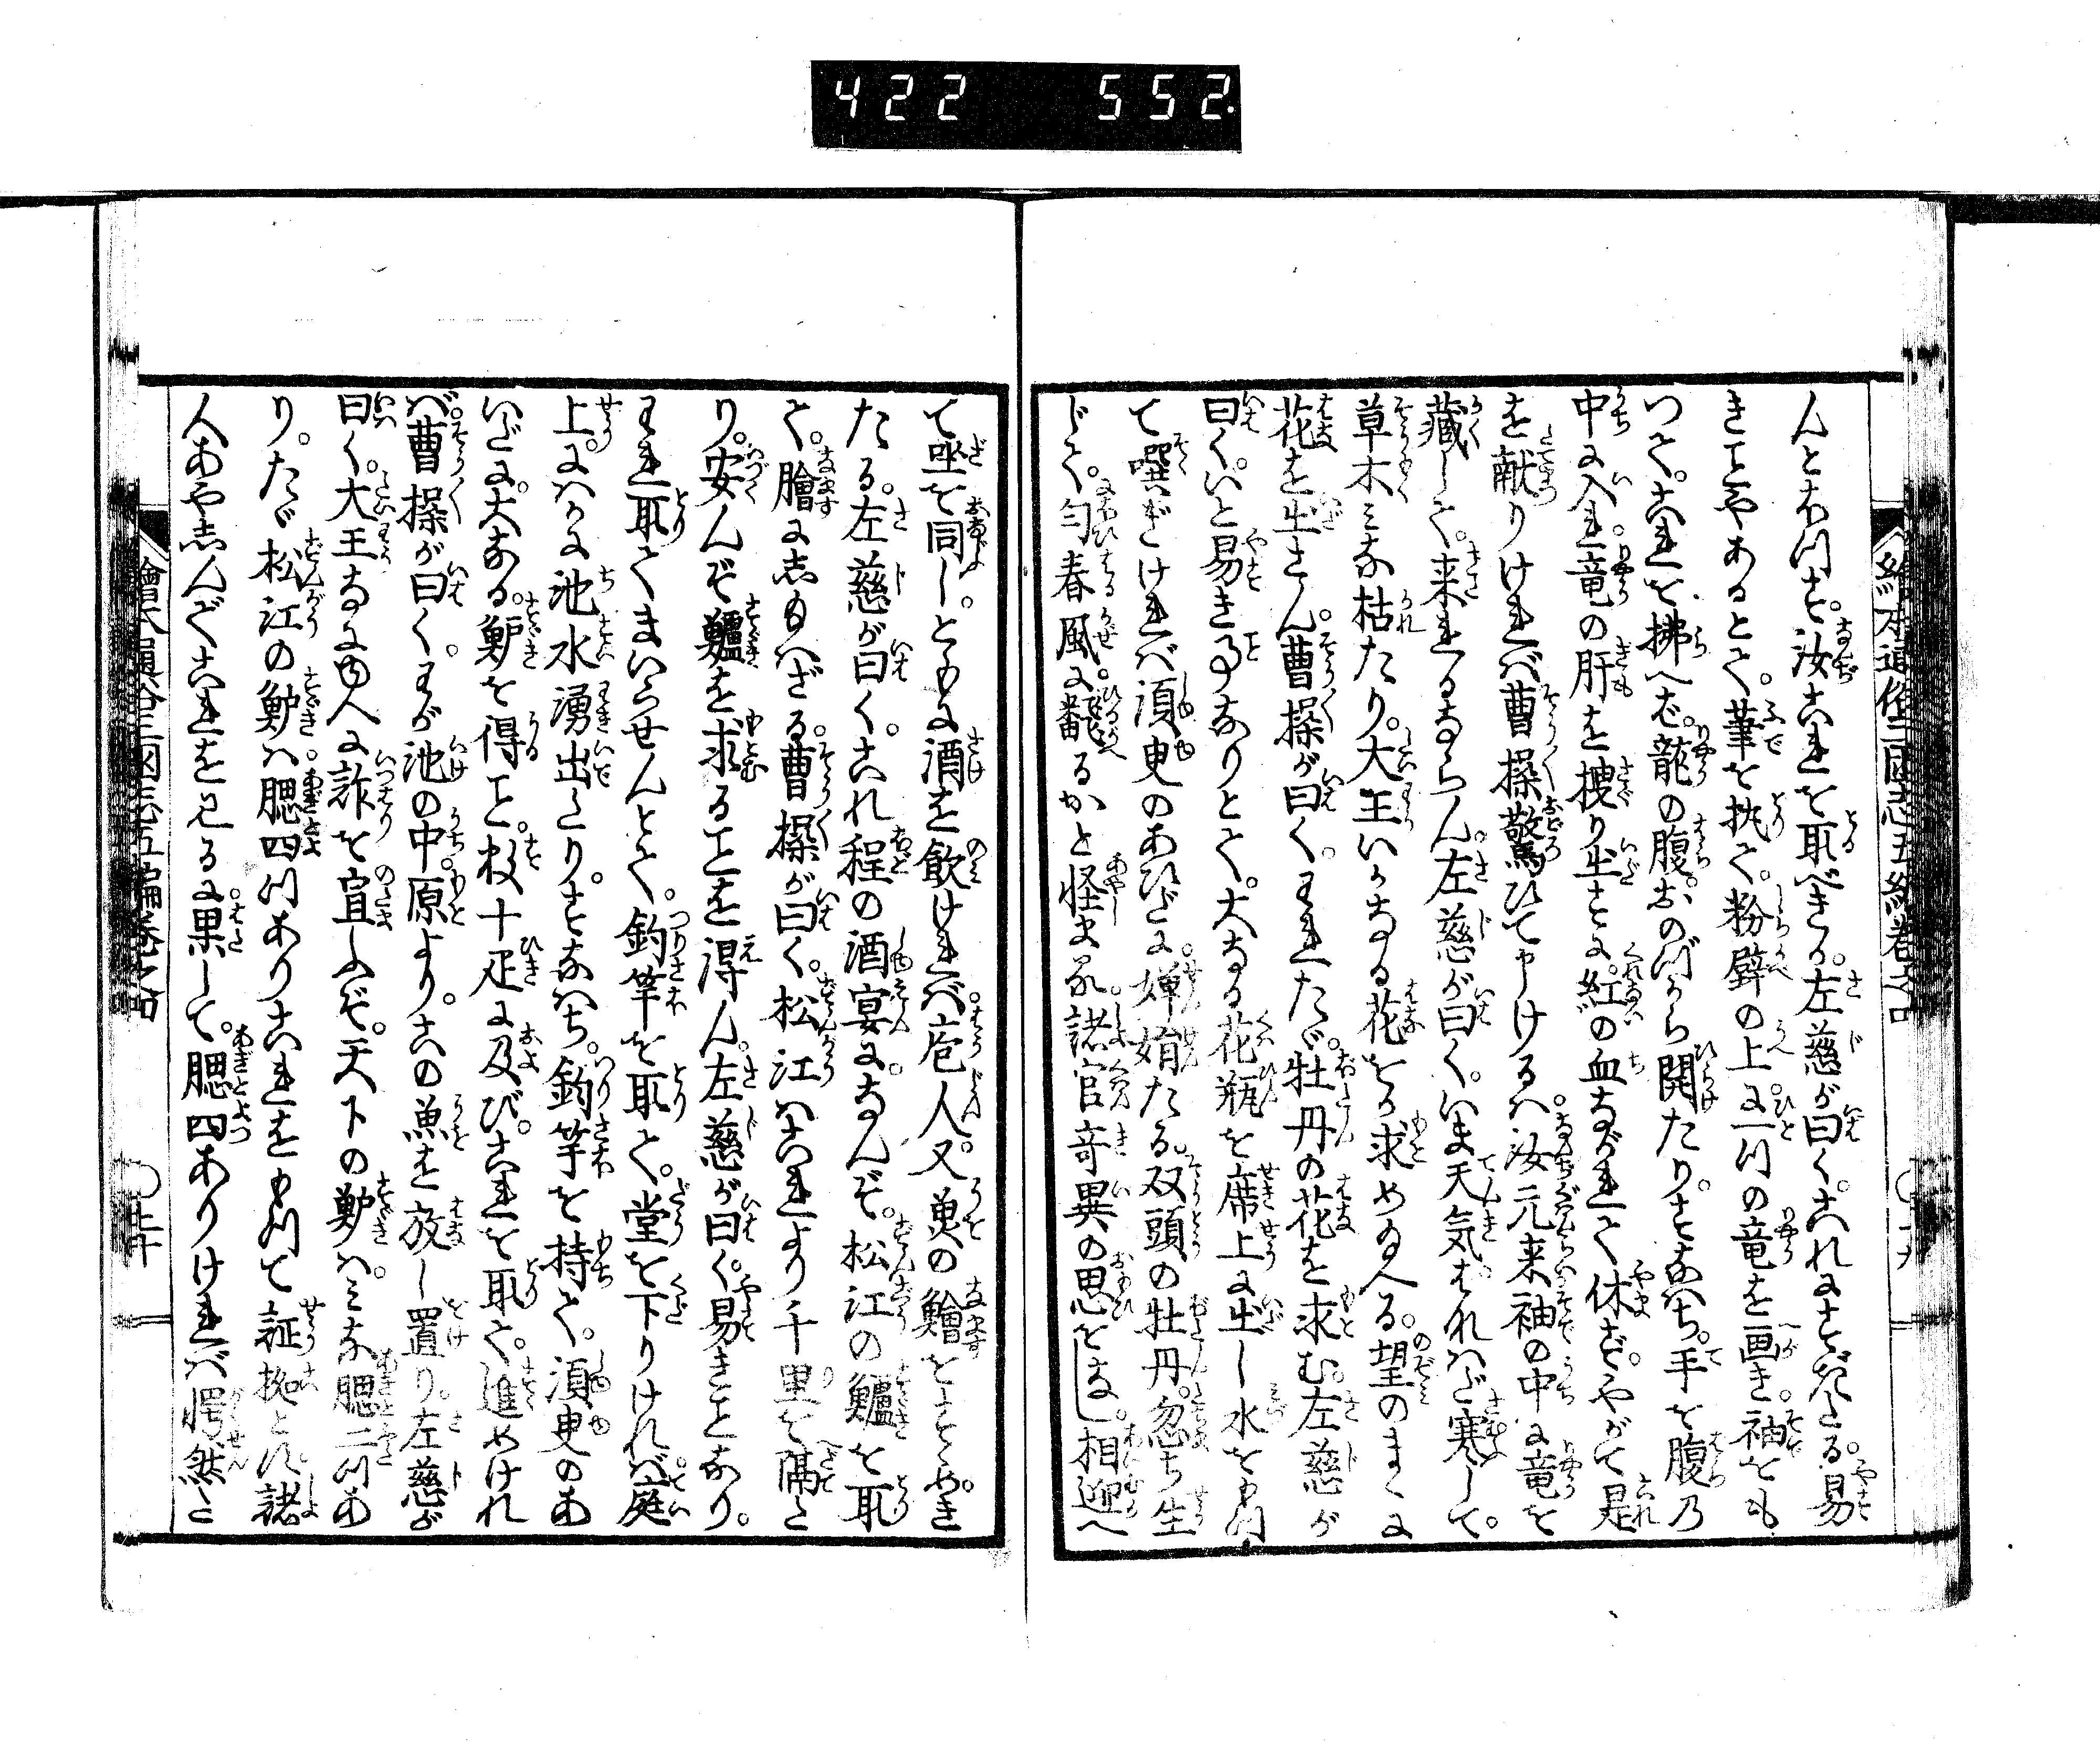 422 552
繪本通俗三國志五編卷之四
んとおいす。汝これを取べきか。左慈が曰く。これにすぎたる。易
きことやあるとて。筆を執て。粉壁の上に一つの竜を画き。袖をも
つて。これを拂へば。龍の腹。おのづから開たり。すなはち。手を腹の
中に入れ。竜の肝を捜り出すに。紅の血ながれて休ず。やがて是
を献りければ曹操驚ひて申けるハ。汝元来袖の中に竜を
藏して。来れるならん。左慈が曰く。いま天気はなハだ寒して。
草木みな枯たり。大王いかなる花をか求め給へる。望のまゝに
花を出さん。曹操が曰く。われたゞ。牡丹の花を求む。左慈が
曰く。いと易き事なりとて。大なる花瓶を席上に出し水をもつ
て噀ぎければ。須臾のあひだに。嬋娟たる。双頭の牡丹。忽ち生
じて。匂春風に飜るかと怪まる。諸官奇異の思をなし。相迎へ
て坐を同し。ともに酒を飲ければ。庖人。又魚の鱠をすゝめき
たる。左慈が曰く。これ程の酒宴に。なんぞ。松江の鱸を取
て。膾にし給ハざる。曹操が曰く。松江ハこれより千里を隔た
り。安んぞ鱸を求ることを得ん。左慈が曰く。易きことなり。
われ取てまいらせんとて。釣竿を取て。堂を下りければ。庭
上ににハかに池水湧出たり。すなハち。釣竿を持て。須臾のあ
いだに。大なる。鱸を得こと。数十疋に及び。これを取て。進めけれ
ば。曹操が曰く。わが池の中。原より。この魚を放し置り。左慈が
曰く。大王なに由人に詐を宣ふぞ。天下の鱸ハ。みな腮二つあ
り。たゞ松江の鱸ハ。腮四つありこれをもつて証拠とす。諸
人あやしんでこれを見るに。果して。腮四ありければ愕然と
繪本通俗三國志五編卷之四